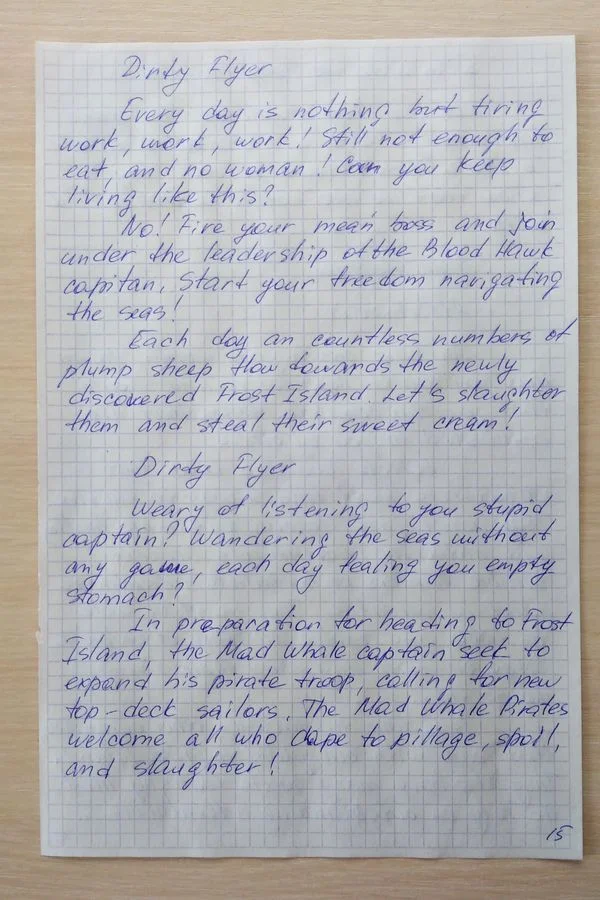 Dirty Flyer
Every day is nothing but tiring
work, work, work! Still not enough to
eat, and no woman! Can you keep
living like this?
No! Fire your mean boss and join
under the leadership of the Blood Hawk
capitan. Start your freedom navigating
the seas!
Each day an countless numbers of
plump sheep flow towards the newly
discovered Frost Island. Let's slaughter
them and steal their sweet cream!
Dirty Flyer
Weary of listening to you stupid
captain? Wandering the seas without
any game, each day fealing you empty
stomach?
In preparation for heading to Frost
Island, the Mad Whale captain seek to
expand his pirate troop, calling for new
top-deck sailors. The Mad Whale Pirates
welcome all who dape to pillage, spoil,
and slaughter!
15